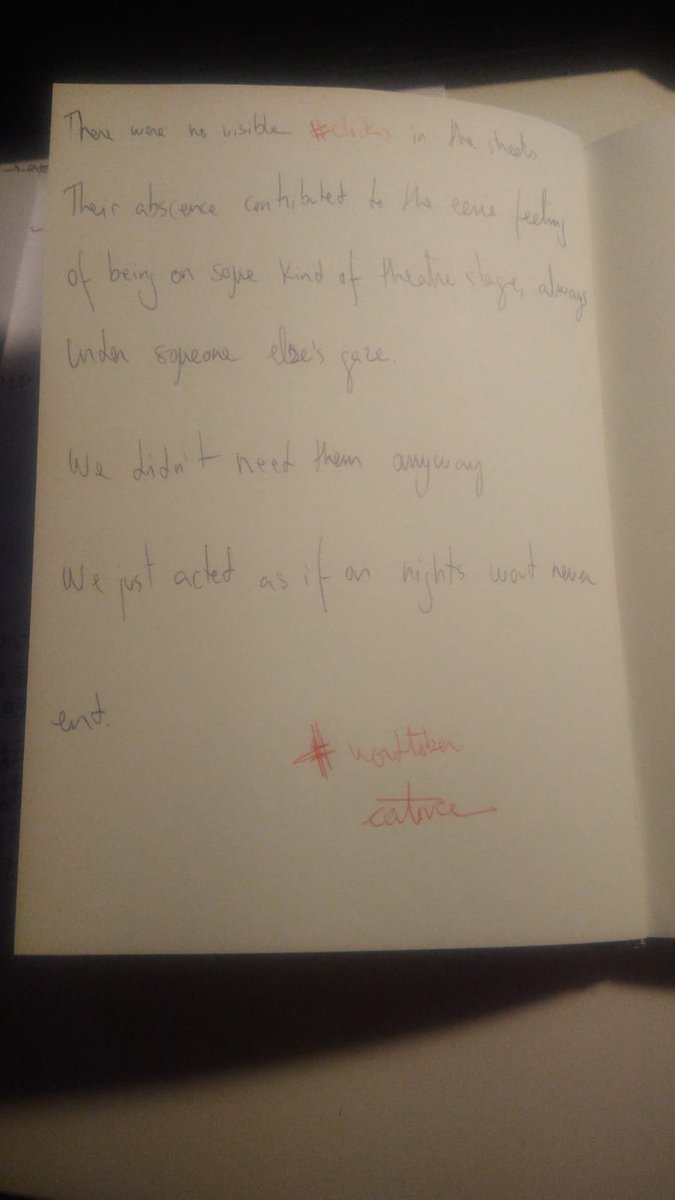 There were no visible #clocks in the streets
Their abscence contributed to the eerie feeling
of being on some kind of theatre stage, always
under someone else's gaze.
We didn't need them anyway.
We just acted as if our nights wont never
end.
#wordtober
catorce